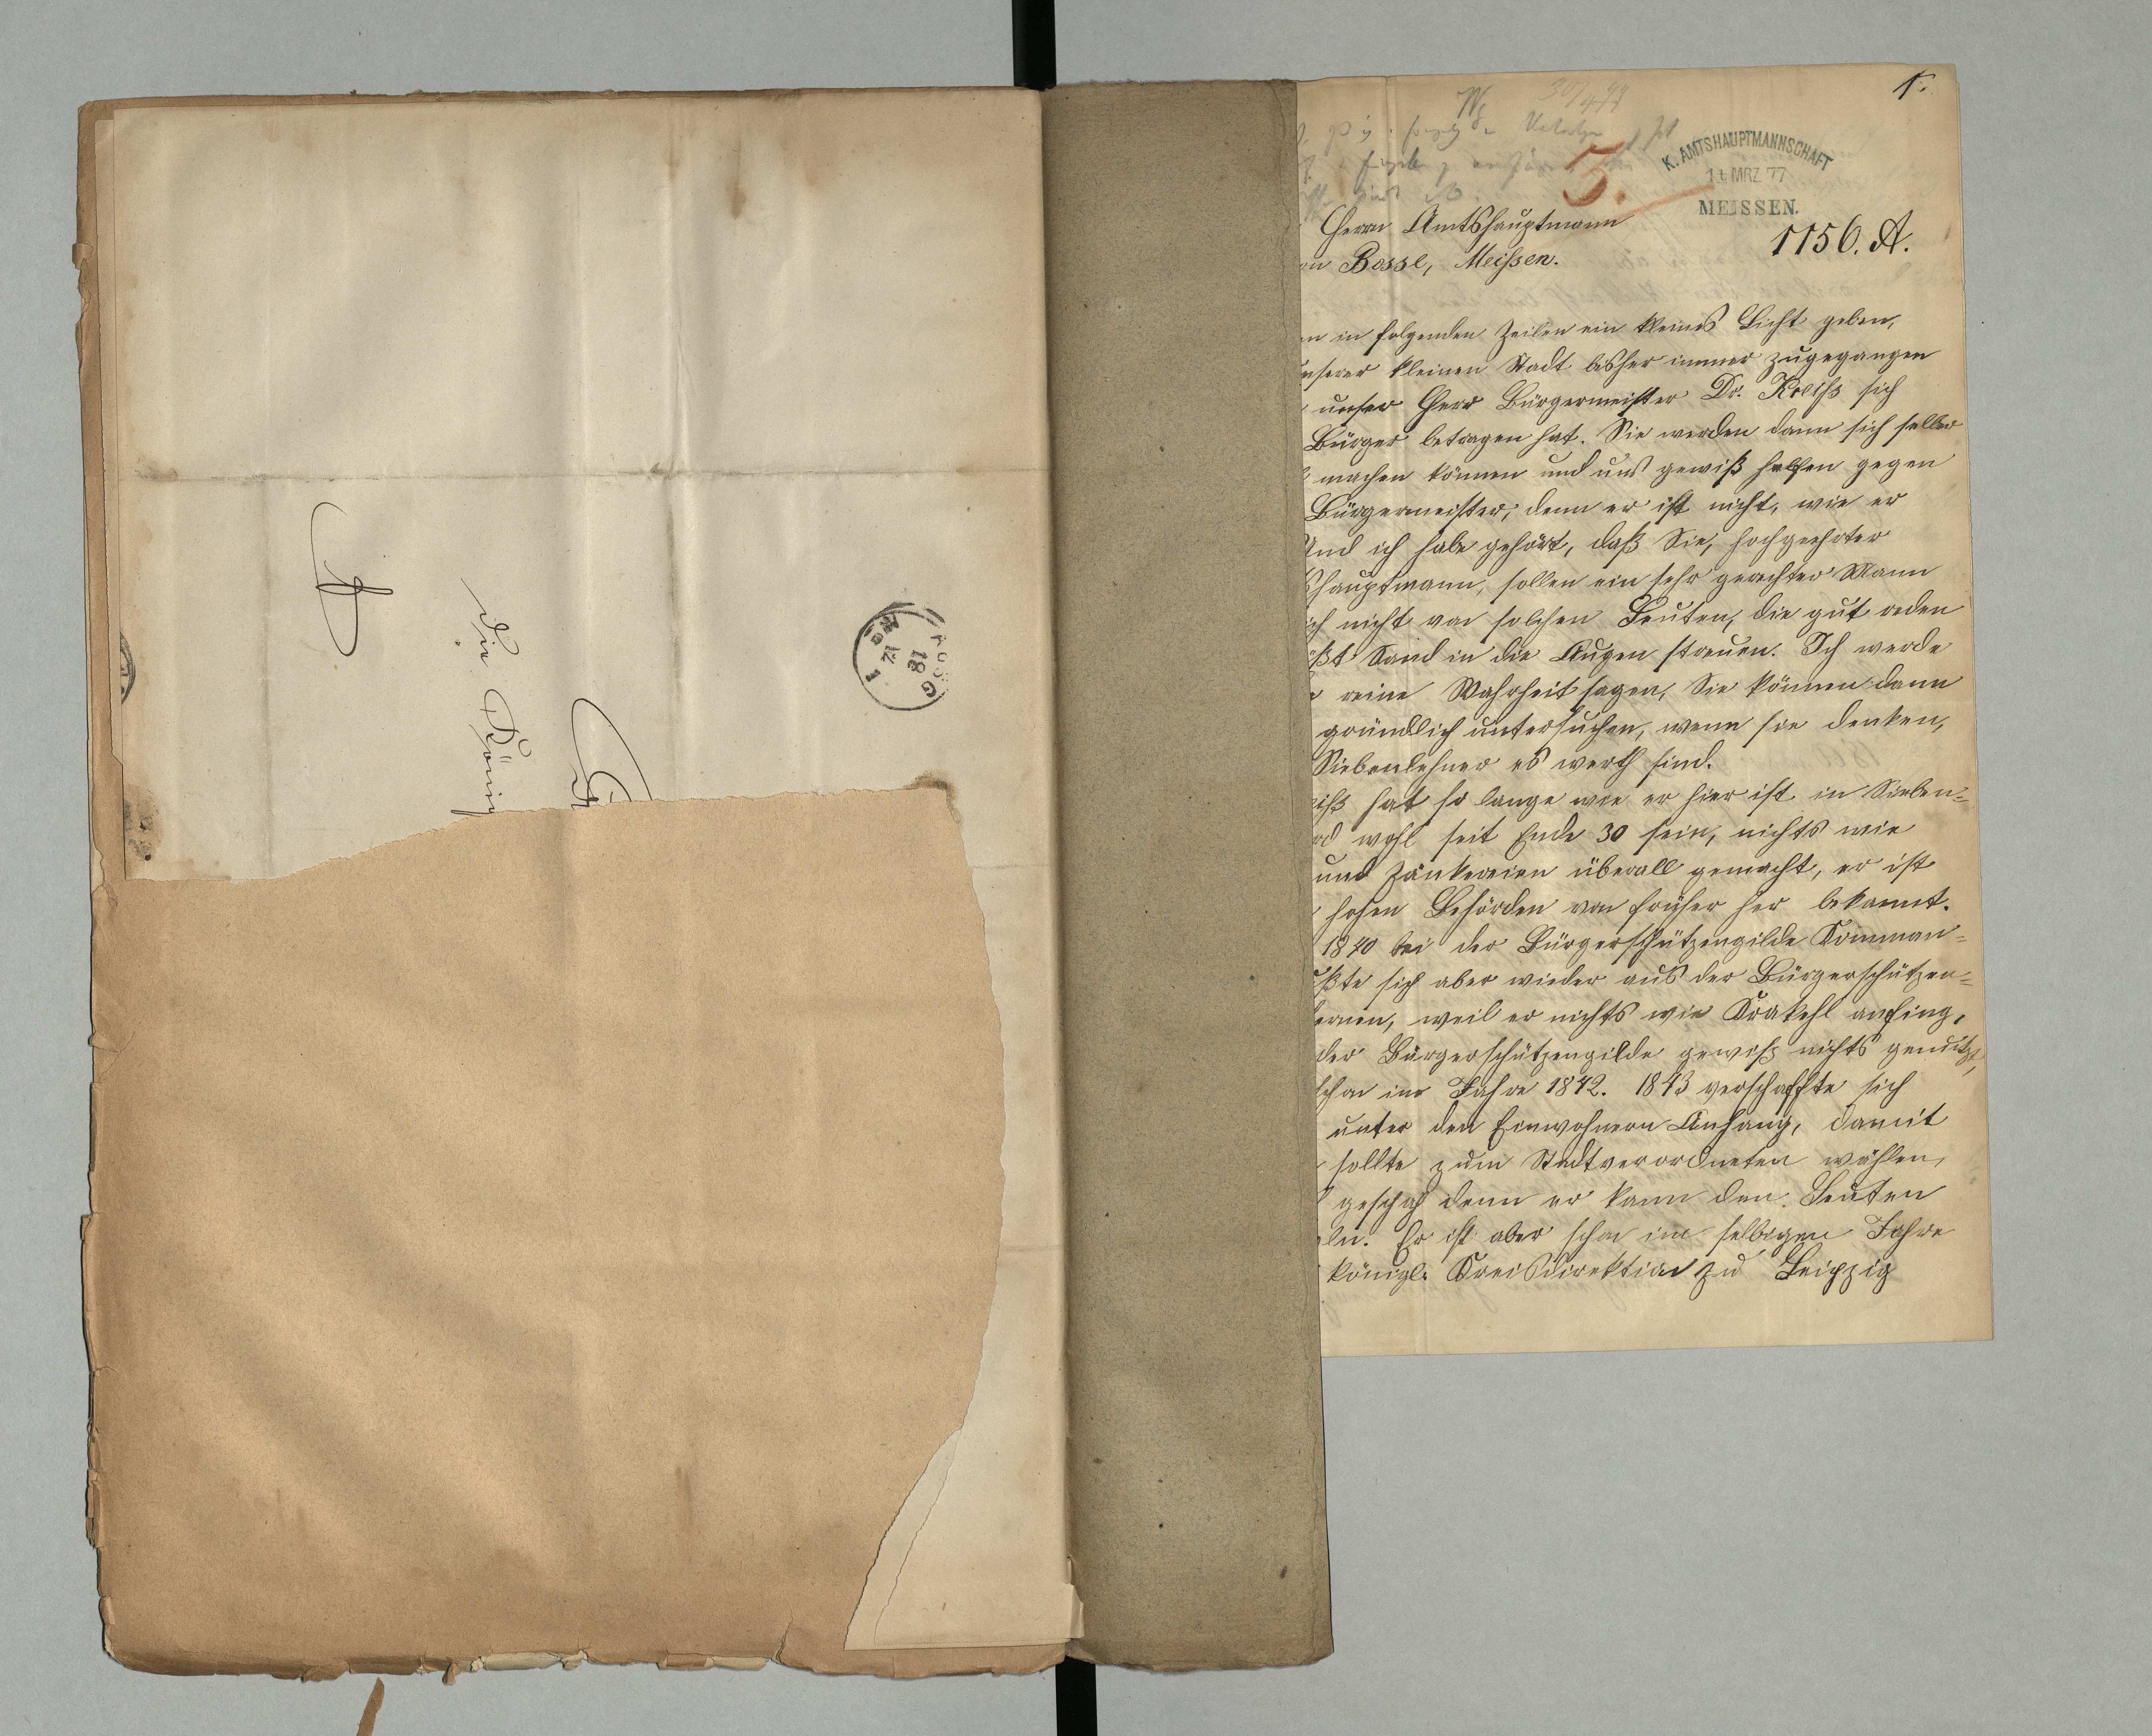 die König
18
1.
K. AMTSHAUPTMANNSCHAFT
MRZ 77
MEISSEN.
5.
1156. A.
Herrn Amtshauptmann
on Bosse, Meißen.
n in folgenden Zeilen ein kleines Licht geben,
nserer kleinen Stadt bisher immer zugegangen
unser Herr Bürgermeister Dr. Kreißs sich
Bürger betragen hat. Sie werden dann sich selber
machen können und uns gewiß helfen gegen
Bürgermeister, denn er ist nicht, wie er
Und ich habe gehört, daß Sie, hochgeehrter
shauptmann, sollen ein sehr gerechter Mann
ch nicht von solchen Leuten, die gut reden
ßt Sand in die Augen streuen. Ich werde
e reine Wahrheit sagen, Sie können dann
gründlich untersuchen, wenn sie denken,
Siebenlehner es werth sind.
eißs hat so lange wie er hier ist in Sieben=
rd wohl seit Ende 30 sein, nichts wie
und Zänkereien überall gemacht, er ist
hohen Behörden von früher her bekannt.
1840 bei der Bürgerschützengilde Komman=
ußte sich aber wieder aus der Bürgerschützen=
ernen, weil er nichts wie Krakehl anfing,
der Bürgerschützengilde gewiß nichts genützt,
schon im Jahre 1842. 1843 verschaffte sich
unter den Einwohnern Anhang, damit
sollte zum Stadtverordneten wählen,
geschah denn er kann den Leuten
eln. Er ist aber schon im selbigen Jahre
königl. Kreisdirektion zu Leipzig